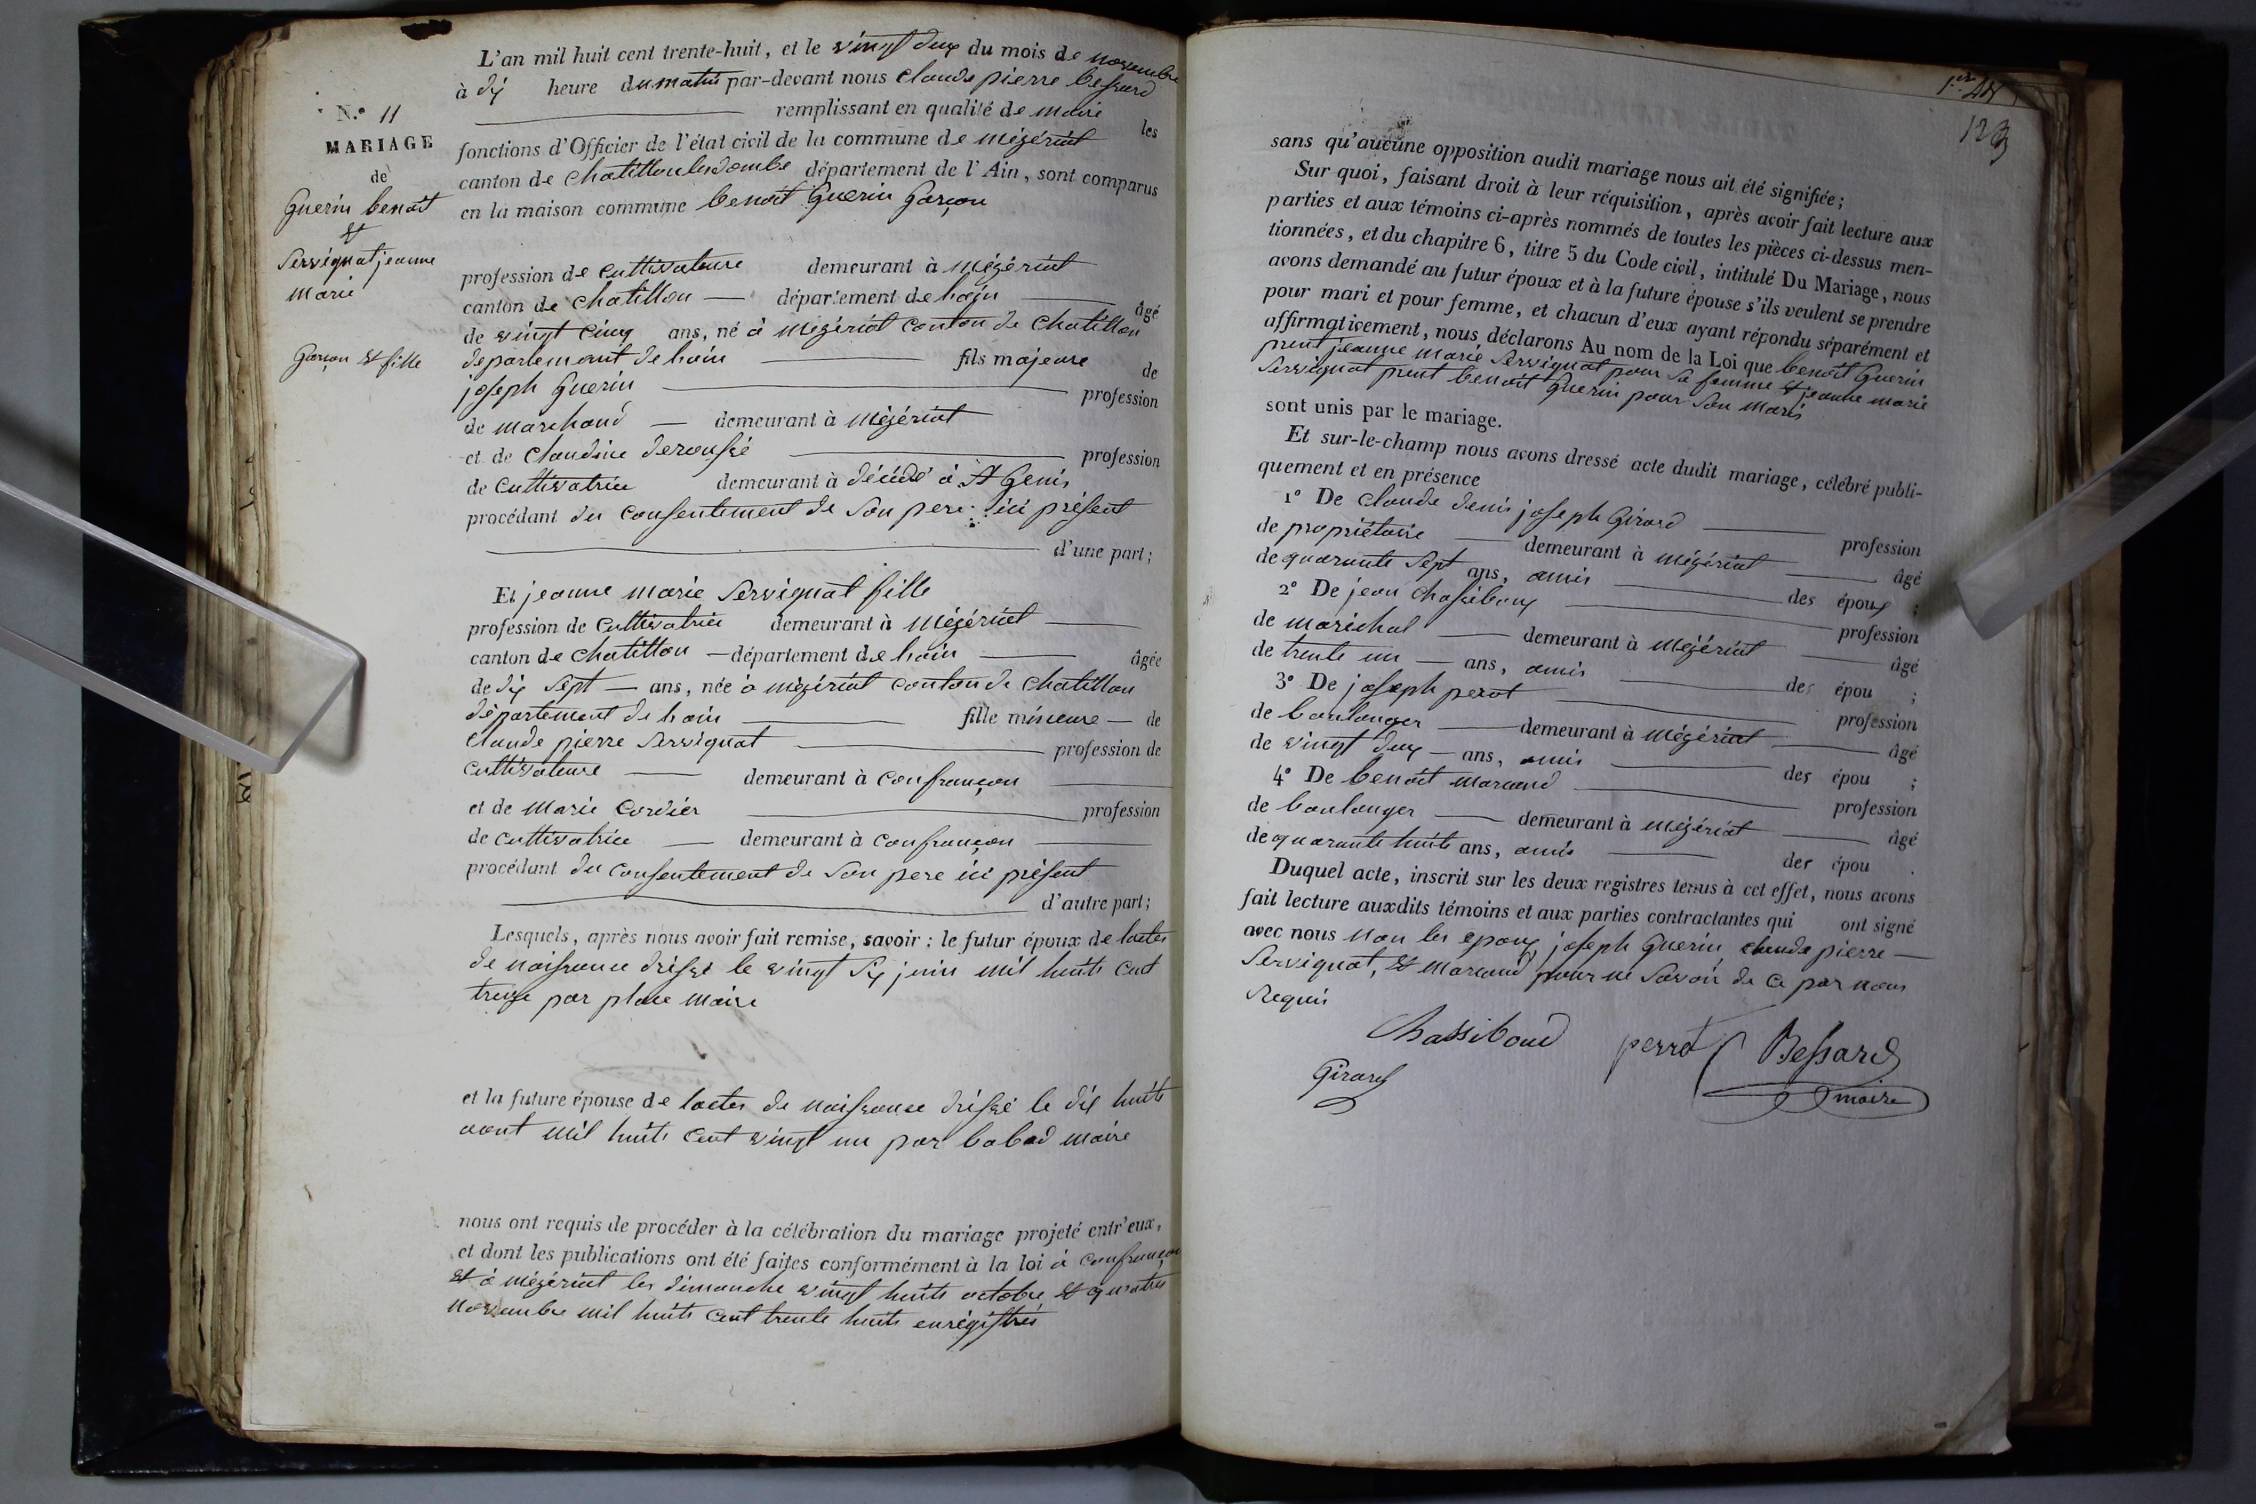 N.° 11
MARIAGE
de
Guerin benoit
et
Servignat jeanne
marie
Garçon et fille
L'an mil huit cent trente-huit, et le vingt deux du mois de novembre
à dix heure du matin par-devant nous claude pierre bessard
remplissant en qualité de maire les
fonctions d'Officier de l'état civil de la commune de mézériat
canton de chatillon les dombe département de l'Ain, sont comparus
en la maison commune benoit Guerin Garçon
profession de cultivateure demeurant à mézériat
canton de chatillon département de hain âgé
de vingt cinq ans, né à mezériat canton de chatillon
departement de hain fils majeure de
joseph Guerin profession
de marchand demeurant à mézériat
et de claudine derousse profession
de cultivatrice demeurant à décédé à St Genis
procédant du consentement de son pere ici présent
d'une part;
Et jeanne marie Servignat fille
profession de cultivatrice demeurant à mézériat
canton de chatillon département de hain âgée
de dix sept ans, née à mézériat canton de chatillon
département de hain fille mineure de
claude pierre Servignat profession de
cultivateure demeurant à confrançon
et de marie Cordier profession
de cultivatrice demeurant à confrançon
procédant du consentement de son pere ici présent
d'autre part;
Lesquels, après nous avoir fait remise, savoir : le futur époux de lactes
de naissance dréssé le vingt six juin mil huits cent
treize par place maire
et la future épouse de lactes de naissanse dréssé le dix huits
aout mil huits cent vingt un par babad maire
nous ont requis de procéder à la célébration du mariage projeté entr'eux,
et dont les publications ont été faites conformément à la loi à confrançon
et à mézériat les dimanche vingt huits octobre et quatres
novembre mil huits cent trente huits enrégistrés
123
sans qu'aucune opposition audit mariage nous ait été signifiée;
Sur quoi, faisant droit à leur réquisition, après avoir fait lecture aux
parties et aux témoins ci-après nommés de toutes les pièces ci-dessus men-
tionnées, et du chapitre 6, titre 5 du Code civil, intitulé Du Mariage, nous
avons demandé au futur époux et à la future épouse s'ils veulent se prendre
pour mari et pour femme, et chacun d'eux ayant répondu séparément et
affirmativement, nous déclarons Au nom de la Loi que benoit Guerin
prent jeanne marie Servignat pour sa femme et jeanne marie
Servignat prent benoit Guerin pour son maris
sont unis par le mariage.
Et sur-le-champ nous avons dressé acte dudit mariage, célébré publi-
quement et en présence
1° De claude denis joseph Girard profession
de propriétaire demeurant à mézériat âgé
de quarante sept ans, amis des époux ;
2° De jean chassiboux profession
de maréchal demeurant à mézériat âgé
de trente un ans, amis des épou ;
3° De joseph perot profession
de boulanger demeurant à mézériat âgé
de vingt deux ans, amis des épou ;
4° De benoit marcand profession
de boulanger demeurant à mézériat âgé
de quarante huits ans, amis des épou .
Duquel acte, inscrit sur les deux registres tenus à cet effet, nous avons
fait lecture auxdits témoins et aux parties contractantes qui ont signé
avec nous non les epoux joseph Guerin claude pierre
Servignat, et marcand pour ne savoir de ce par nous
Requis
Chassiboud perrot Bessard
Girard maire